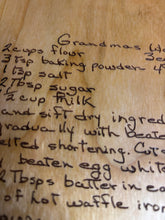 Grandmas
2 cups flour
3 tsp baking powder
1 tsp salt
2 Tbsp sugar
1/2 cup milk
and sift dry ingred
gradually with beate
elted shortening.
beaten egg white
2 Tbsps batter in cen
of hot waffle iron